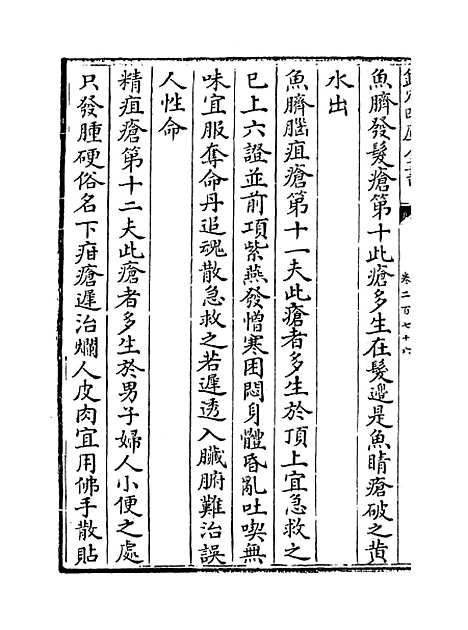 欽定四庫全書
卷二百七十六
魚臍發髮瘡第十此瘡多生在髮邊是魚睛瘡破之黃
水出
魚臍腦疽瘡第十一夫此瘡者多生於頂上宜急救之
已上六證並前項紫燕發憎寒困悶身體昏亂吐喫無
味宜服奪命丹追魂散急救之若遲透入臟腑難治誤
人性命
精疽瘡第十二夫此瘡者多生於男子婦人小便之處
只發腫硬俗名下疳瘡遲治爛人皮肉宜用佛手散貼